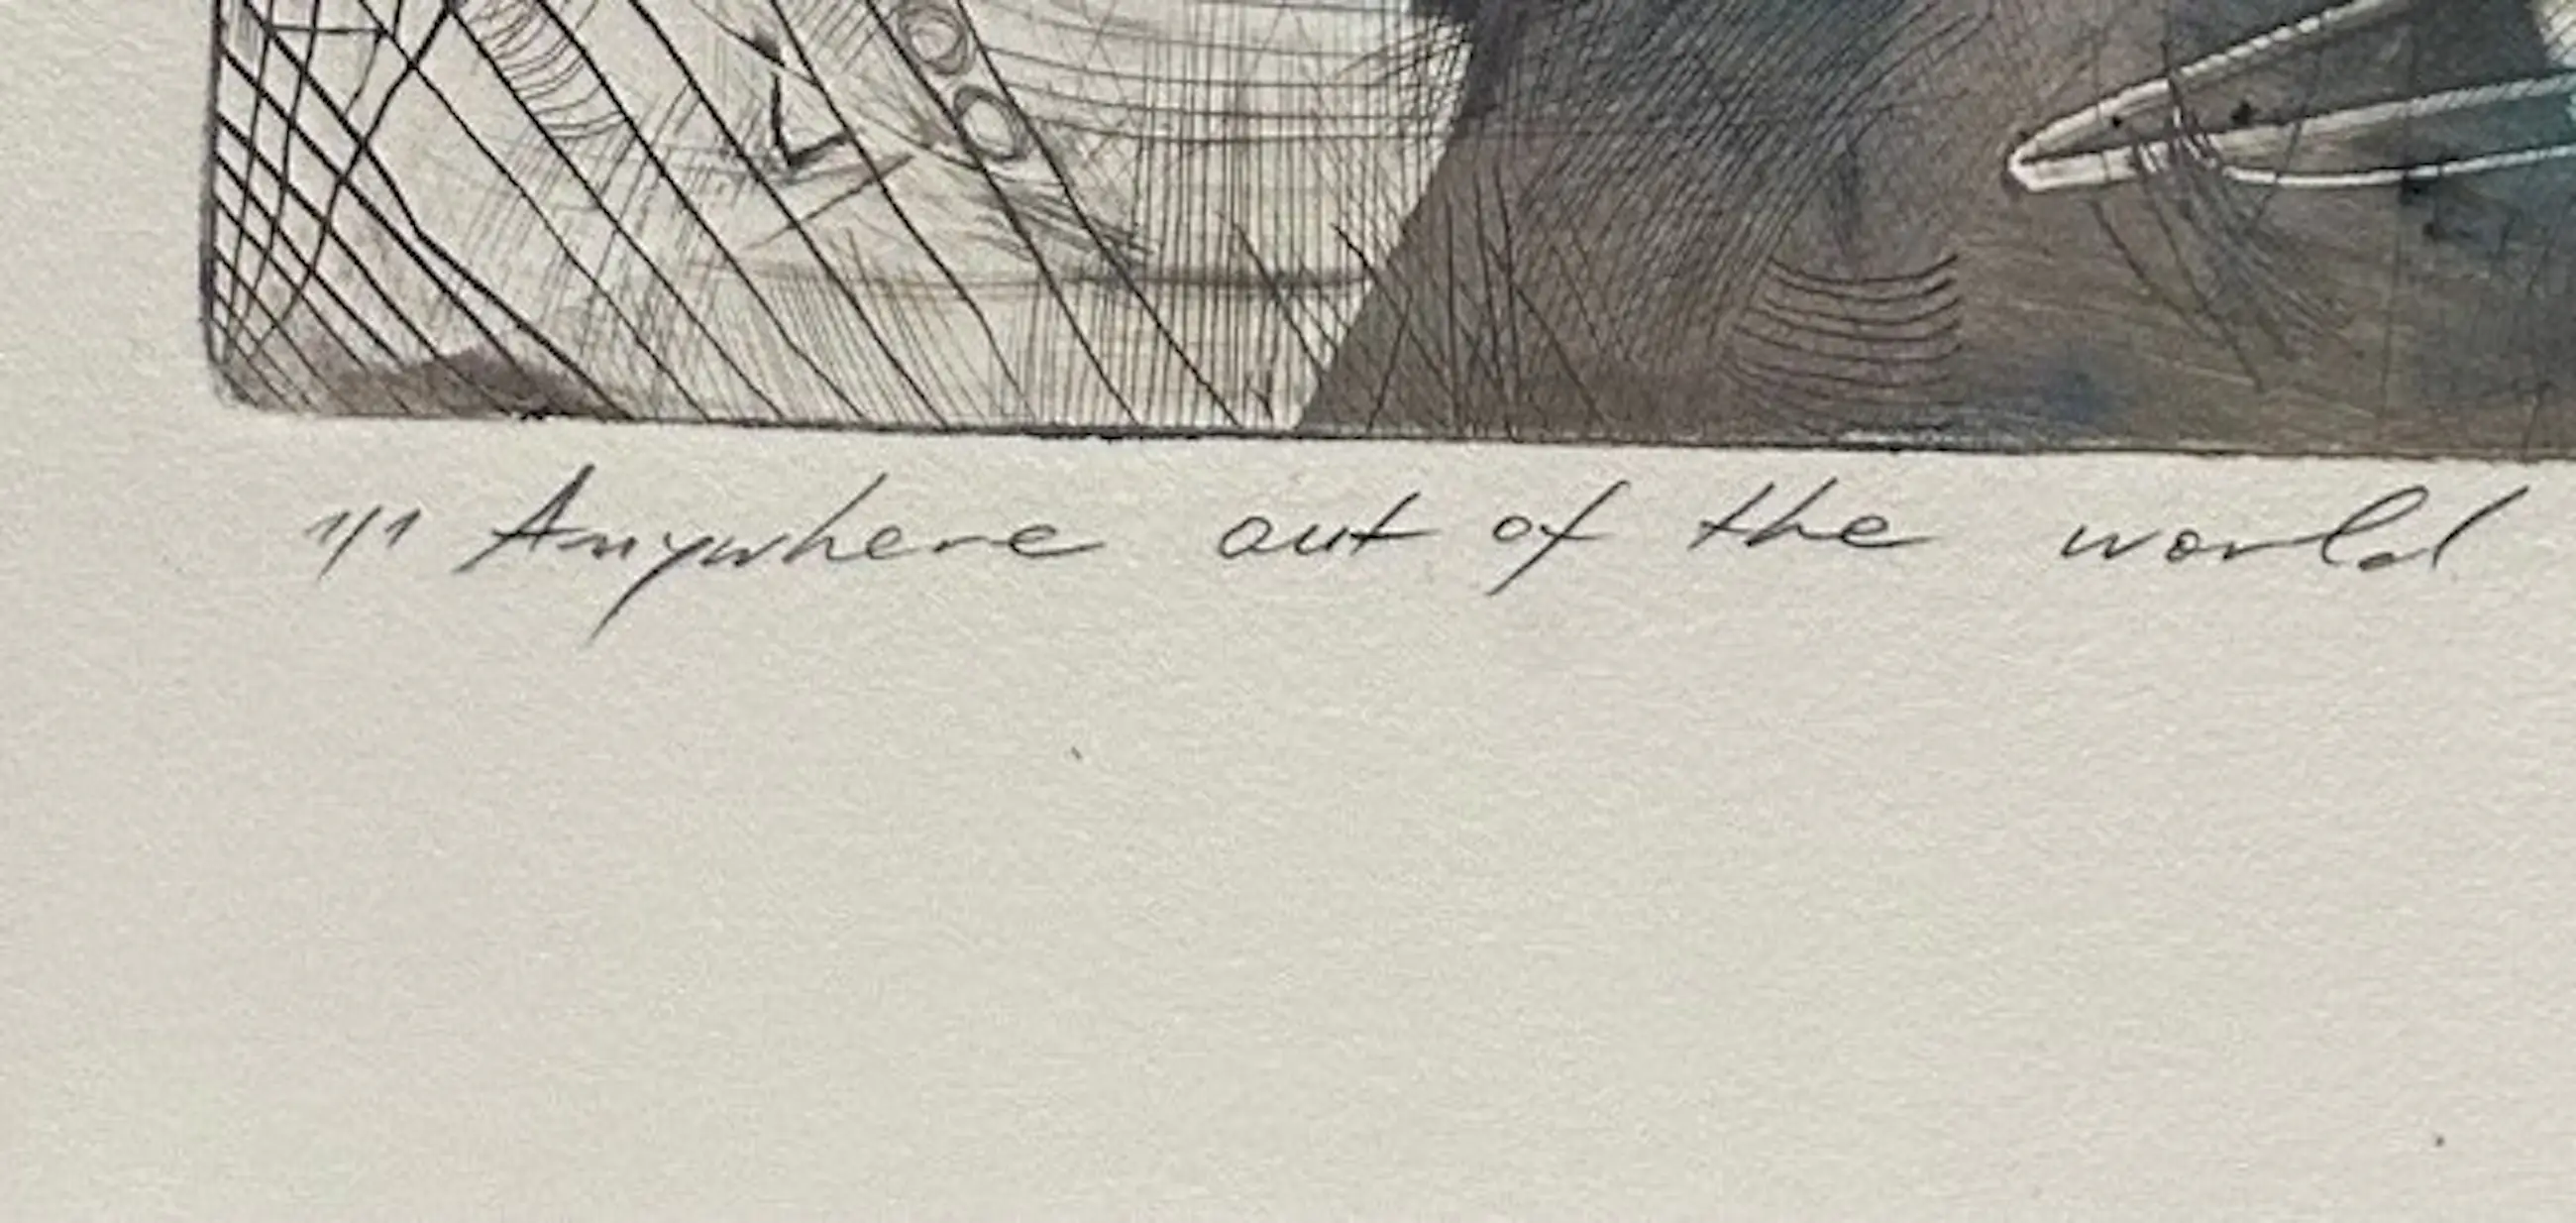 1/1 Anywhere out of the world